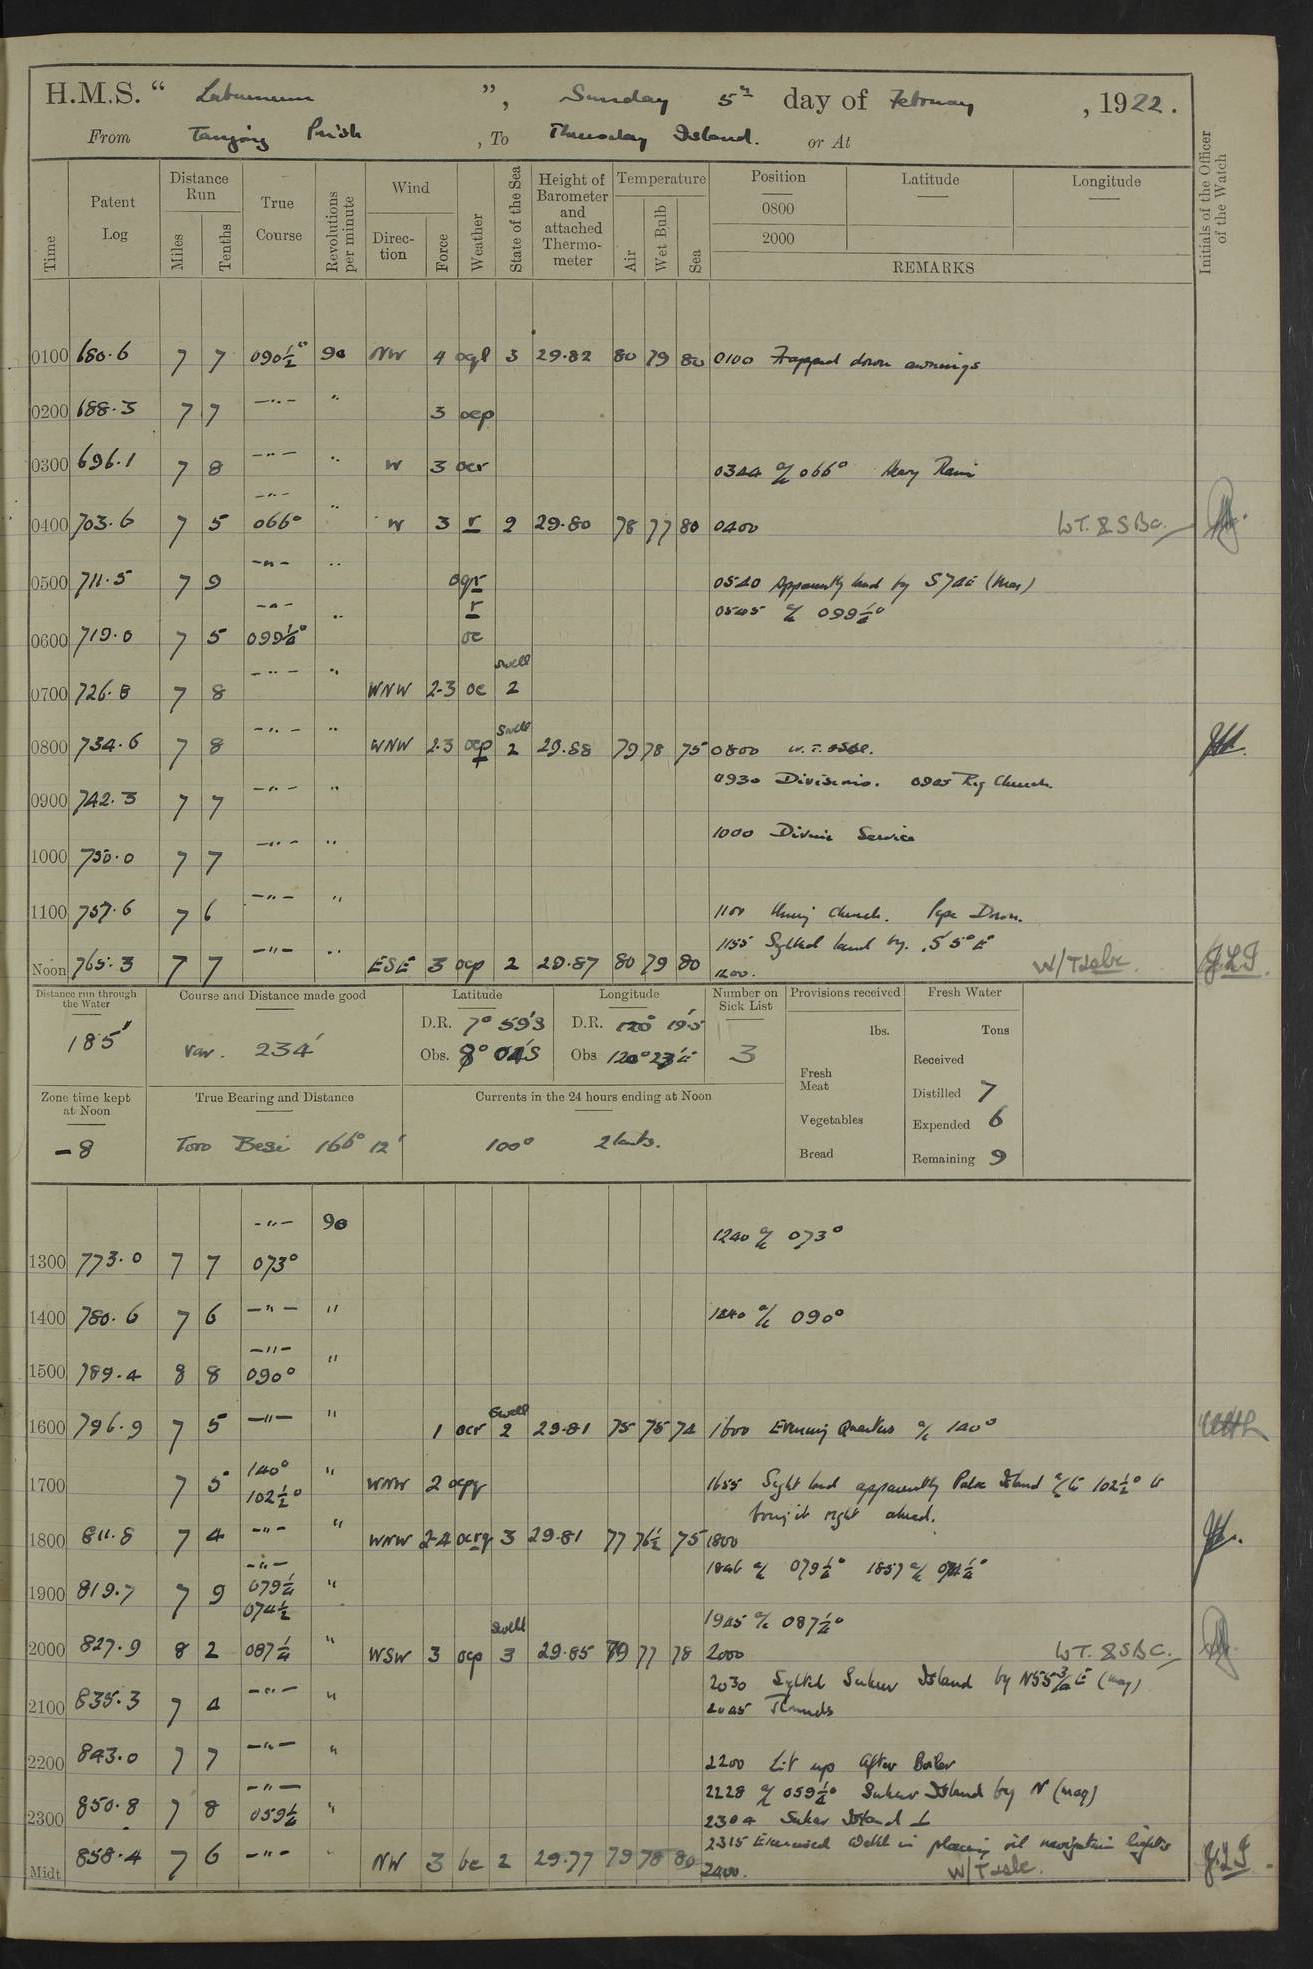 H.M.S. “ Laburnum ”, Sunday 5th day of February , 1922.
From Tanjong Priok , To Thursday Island. or At
Time Patent Log Distance Run Miles Tenths True Course Revolutions per minute Wind Direction Force Weather State of the Sea Height of Barometer and attached Thermometer Temperature Air Wet Bulb Sea Position Latitude Longitude
0800
2000
REMARKS
Initials of the Officer of the Watch
0100 680.6 7 7 090½° 90 NW 4 oql 3 29.82 80 79 80 0100 Frapped down awnings
0200 688.3 7 7 —"— " 3 ocp
0300 696.1 7 8 —"— " W 3 ocr 0344 a/c 066° Heavy Rain
—"—
0400 703.6 7 5 066° " W 3 r 2 29.80 78 77 80 0400 W.T. & S.B.C.
0500 711.5 7 9 —"— " oqr 0540 Apparently land by S74E (mag)
—"— " r 0545 a/c 099¼°
0600 719.0 7 5 099¼° oc
swell
0700 726.8 7 8 —"— " WNW 2-3 oc 2
Swell
0800 734.6 7 8 —"— " WNW 2-3 ocp 2 29.88 79 78 75 0800 W.T. &SBC.
0930 Divisions. 0945 Rig Church.
0900 742.3 7 7 —"— "
1000 Divine Service
1000 750.0 7 7 —"— "
1100 757.6 7 6 —"— " 1100 Unrig Church. Pipe Down.
1155 Sighted land by. S 5° E
Noon 765.3 7 7 —"— " ESE 3 ocp 2 29.87 80 79 80 1200. W/T &sbc. J.L.J.
Distance run through the Water
185"
Course and Distance made good
Var. 234'
Latitude
D.R. 7° 59'S
Obs. 8° 04'S
Longitude
D.R. 120° 19'5
Obs 120° 23'E
Number on Sick List
3
Provisions received
lbs.
Fresh Meat
Vegetables
Bread
Fresh Water
Tons
Received
Distilled 7
Expended 6
Remaining 9
Zone time kept at Noon
-8
True Bearing and Distance
Toro Besi 166° 12'
Currents in the 24 hours ending at Noon
100° 2 knts.
—"— 90 1240 a/c 073°
1300 773.0 7 7 073°
1400 780.6 7 6 —"— " 1440 a/c 090°
—"— "
1500 789.4 8 8 090°
Swell
1600 796.9 7 5 —"— " 1 ocr 2 29.81 75 75 74 1600 Evening Quarters a/c 140°
1700 7 5 140° " WNW 2 1655 Sight land apparently Paloe Island a/c to 102½° to
102½° bring it right ahead.
1800 811.8 7 4 —"— " WNW 2-4 ocrq 3 29.81 77 76½ 75 1800
—"— 1846 a/c 079¼° 1857 a/c 074½°
1900 819.7 7 9 079¼ "
074½ 1945 a/c 087¼°
Swell
2000 827.9 8 2 087¼ " WSW 3 ocp 3 29.85 79 77 78 2000 W.T. & S.B.C.
2030 Sighted Sukur Island by N55¾E (mag)
2100 835.3 7 4 —"— " 2045 Rounds
2200 843.0 7 7 —"— " 2200 Lit up After Boiler
—"— 2228 a/c 059¼° Sukur Island by N (mag)
2300 850.8 7 8 059¼ " 2304 Sukur Island ⊥
2315 Exercised watch in placing oil navigation lights
Midt. 858.4 7 6 —"— " NW 3 bc 2 29.77 79 78 80 2400. W/T &sbc. J.L.J.